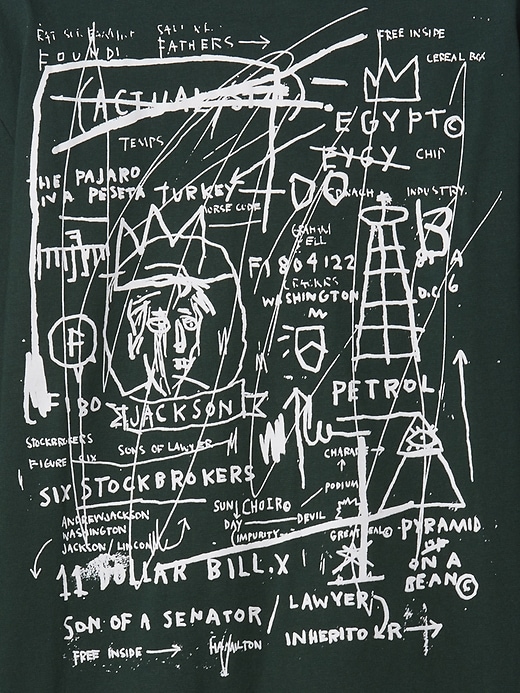 FOUND!
FATHERS
FREE INSIDE
CEREAL BOX
(ACTUAL SIZE)
EGYPT©
TEMPS
EYGY CHIP
THE PAJARO
IN A PESETA
TURKEY
MORSE CODE
SPINACH
INDUSTRY.
B
A
F1804122
WASHINGTON
D.C.
6
F
F180
JACKSON
PETROL
STOCKBROKERS
SONS OF LAWYER
FIGURE SIX
CHARADE
SIX STOCKBROKERS
PODIUM
SUN CHOIR©
DAY
DEVIL
(IMPURITY
ANDREWJACKSON
WASHINGTON
JACKSON/LINCOLN
GREAT SEAL©
PYRAMID
OF
ON A
BEAN©
11 DOLLAR BILL.X
SON OF A SENATOR / LAWYER
INHERITOR
FREE INSIDE
HAMILTON